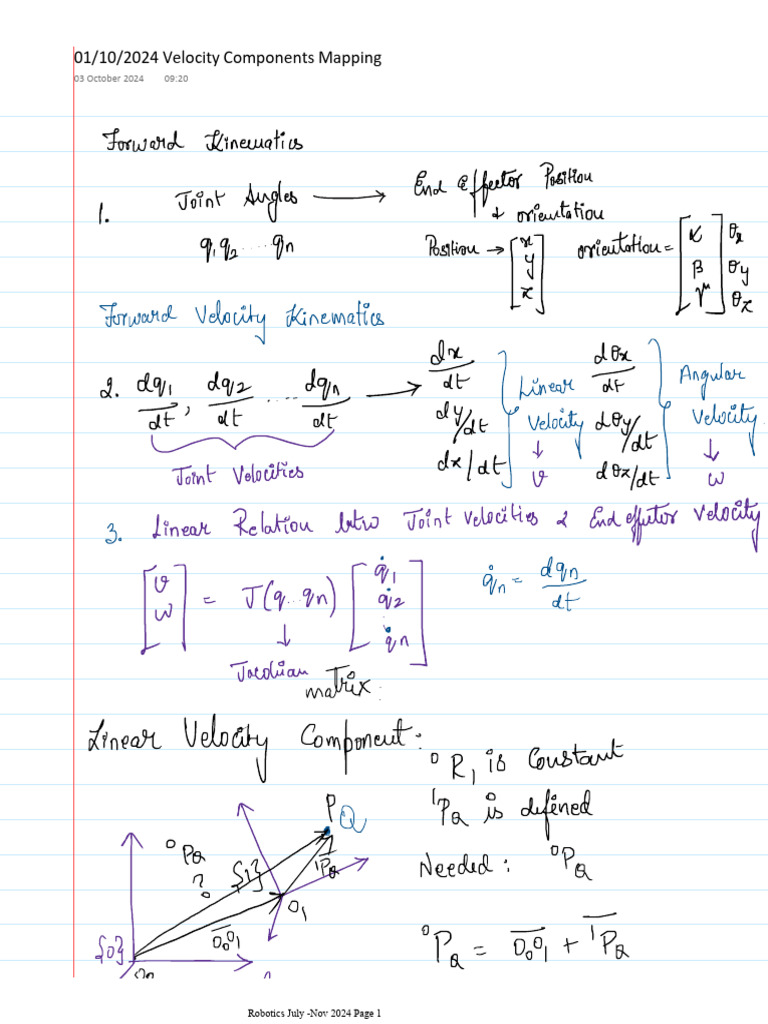 01/10/2024 Velocity Components Mapping
03 October 2024 09:20
Forward Kinematics
1. Joint Angles → End effector Position
+ orientation
q1 q2 .... qn
Position → [x y z] orientation = [α β γ] θx θy θz
Forward Velocity Kinematics
2. dq1/dt, dq2/dt .... dqn/dt → dx/dt dy/dt dz/dt } Linear Velocity ↓ v
dθx/dt dθy/dt dθz/dt } Angular Velocity ↓ w
Joint Velocities
3. Linear Relation btw Joint Velocities & End effector Velocity
[v w] = J(q...qn) [q̇1 q̇2 : q̇n] q̇n = dqn/dt
↓
Jacobian matrix:
Linear Velocity Component:
⁰R₁ is Constant
¹PQ is defined
Needed: ⁰PQ
⁰PQ = O₀O₁ + ¹PQ
P Q
⁰PQ ?
{1}
¹PQ
O₁
O₀O₁
{0}
O₀
Robotics July -Nov 2024 Page 1